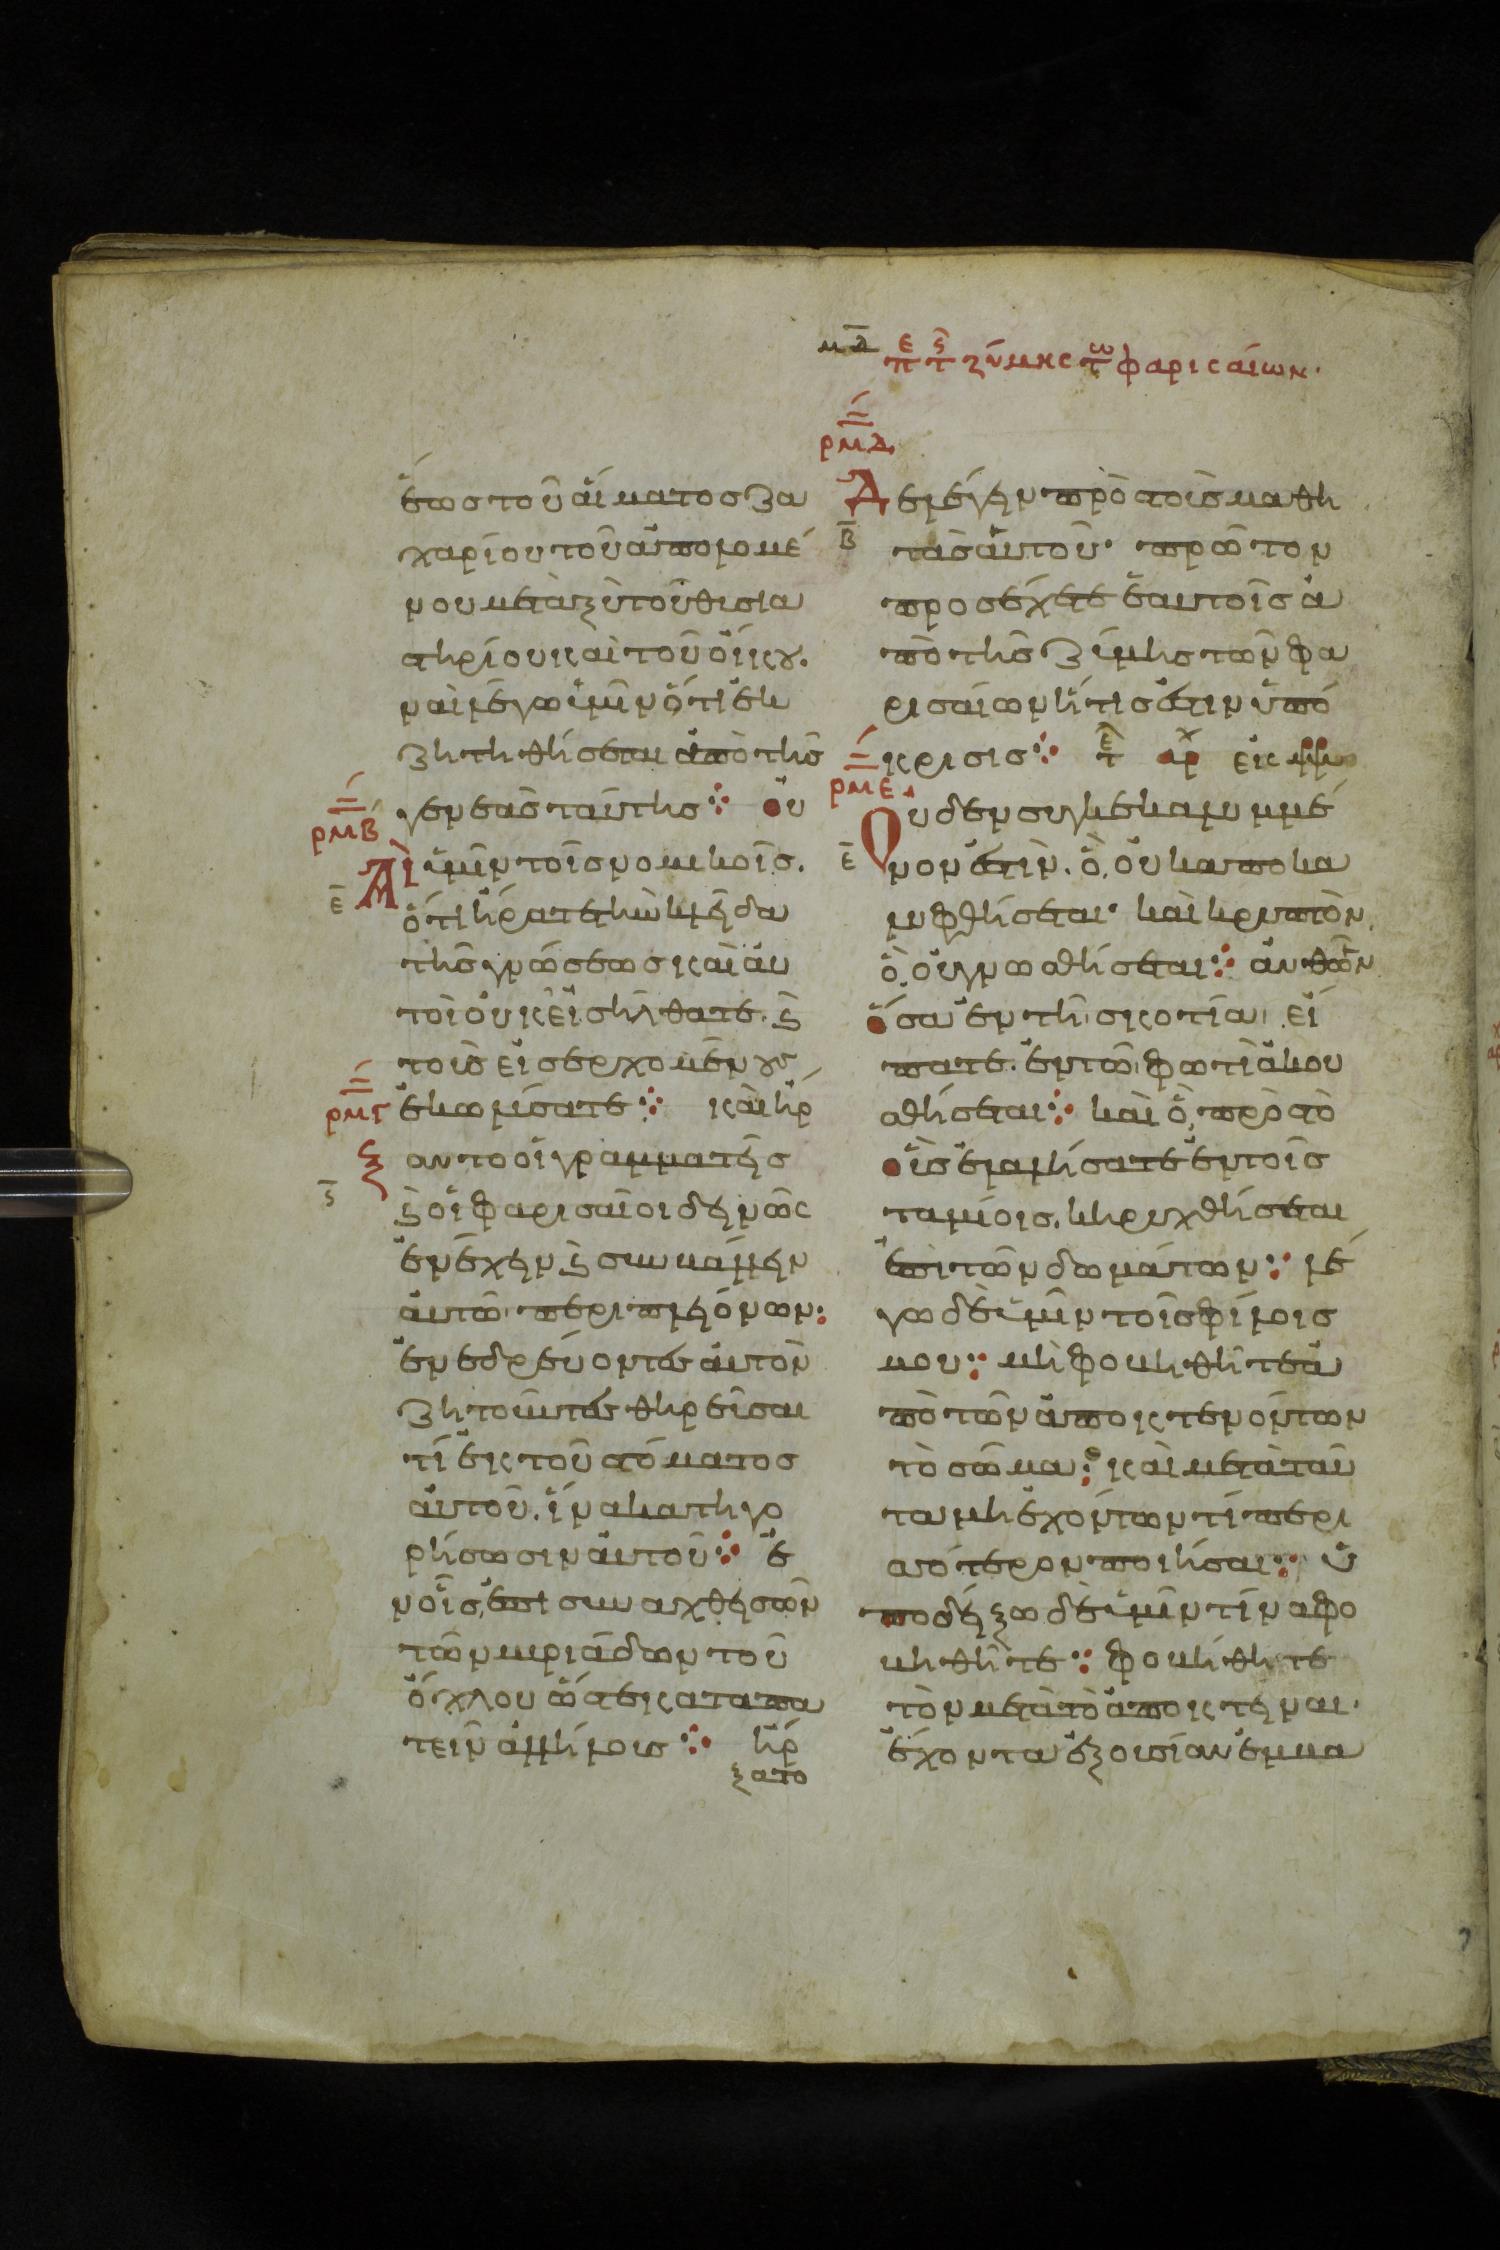 μδ πε τς ζύμης τω φαρισαίων.
ρμδ
ἕως τοῦ αἵματος Ζα
χαρίου τοῦ ἀπολομέ
νου μεταξὺ τοῦ θυσια
στηρίου καὶ τοῦ οἴκου.
ναὶ λέγω ὑμῖν ὅτι ἐκ
ζητηθήσεται ἀπὸ τῆς
γενεᾶς ταύτης ⁘ Ου
ρμβ
αὶ ὑμῖν τοῖς νομικοῖς.
ε
ὅτι ἤρατε τὴν κλεῖδα
τῆς γνώσεως καὶ αὐ
τοὶ οὐκ εἰσήλθατε. ϗ
τοὺς εἰσερχομένους
ἐκωλύσατε ⁘ καὶ ἤρ
ρμγ
ξ
αντο οἱ γραμματεῖς
ς
ϗ οἱ φαρισαῖοι δεινῶς
ἐνέχειν ϗ συνβάλλειν
αὐτῶ περὶ πλειόνων:
ἐνεδρεύοντες αὐτὸν
ζητοῦντες θηρεῦσαι
τί ἐκ τοῦ στόματος
αὐτοῦ. ἵνα κατηγο
ρήσωσιν αὐτοῦ ⁘ ἐ
ν οἷς ἐπισυναχθεισῶν
τῶν μυριάδων τοῦ
ὄχλου ὥστε καταπα
τεῖν ἀλλήλους ⁘ ἤρ
ξατο
Δ ε λέγειν πρὸς τοὺς μαθη
β
τὰς αὐτοῦ· πρῶτον
προσέχετε ἑαυτοῖς ἀ
πὸ τῆς ζύμης τῶν φα
ρισαίων ἥτις ἐστιν ὑπό
κρισις ⁘
ρμε
Ουδεν συγκεκαλυμμέ
ε
νον ἐστὶν. ὃ οὐκ ἀποκα
λυφθήσεται· καὶ κρυπτὸν
ὃ οὐ γνωσθήσεται ⁘ ἀνθ ὧν
ὅσα ἐν τῇ σκοτία εἴ
πατε. ἐν τῶ φωτὶ ἀκου
σθήσεται ⁘ καὶ ὃ πρὸς τὸ
οὖς ἐλαλήσατε ἐν τοῖς
ταμίοις. κηρυχθήσεται
ἐπὶ τῶν δωμάτων ⁘ λέ
γω δὲ ὑμῖν τοῖς φίλοις
μου ⁘ μὴ φοβηθῆτε ἀ
πὸ τῶν ἀποκτενόντων
τὸ σῶμα ⁘ καὶ μετὰ ταῦ
τα μὴ ἐχόντων τί περι
σσότερον ποιῆσαι ⁘ ὑ
ποδείξω δὲ ὑμῖν τίνα φο
βηθῆτε ⁘ φοβήθητε
τὸν μετὰ τὸ ἀποκτεῖναι·
ἔχοντα ἐξουσίαν ἐμβα